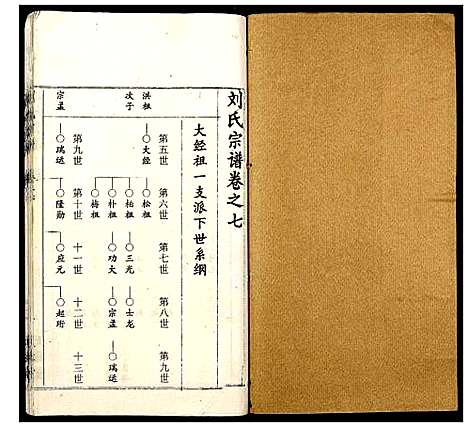 刘氏宗谱卷之七
大经祖一支派下世系纲
洪祖
次子
第五世
大经
第六世
松祖
柏祖
朴祖
梅祖
第七世
三光
功大
第八世
士龙
宗孟
第九世
瑞运
宗孟
第九世
瑞运
第十世
隆勋
十一世
应元
十二世
起珩
十三世